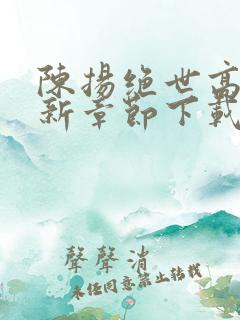 陳揚絕世高
新章節下載
聲聲消
未經同意禁止轉載